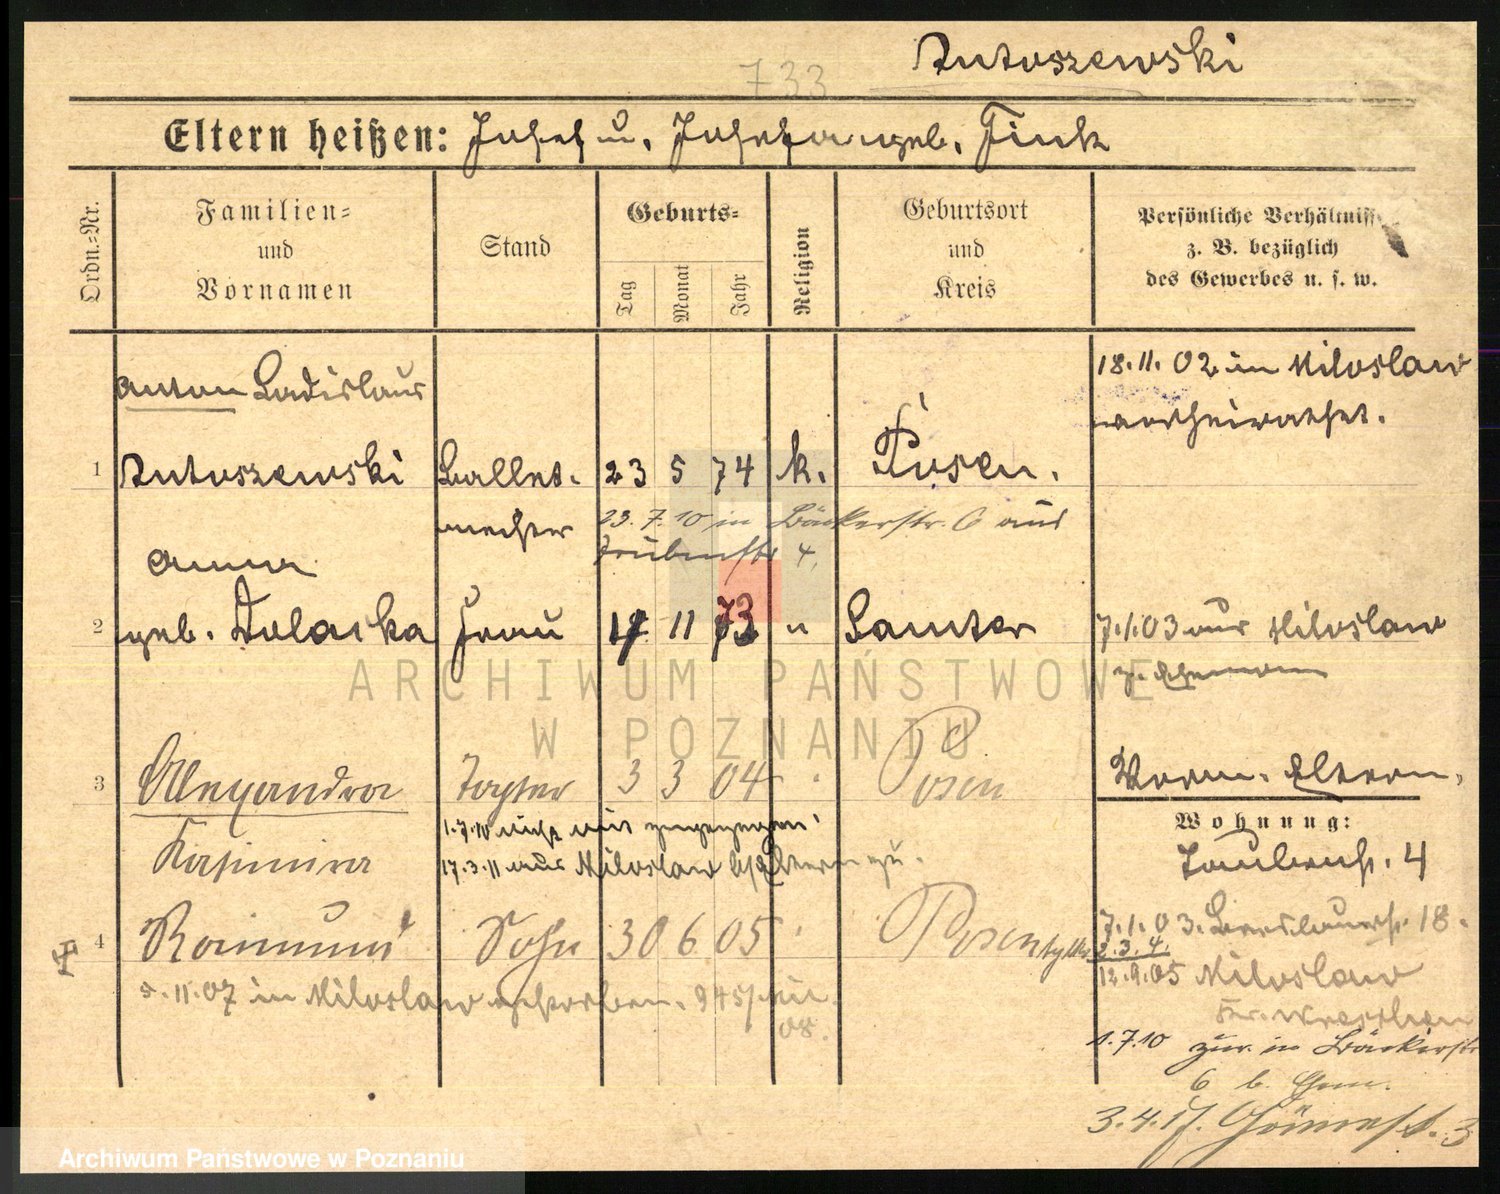 733
Antoszewski
Eltern heißen: Josef u. Josefa geb. Fink
Ordn.=Nr.
Familien=
und
Vornamen
Stand
Geburts=
Tag
Monat
Jahr
Religion
Geburtsort
und
Kreis
Persönliche Verhältniss
z. B. bezüglich
des Gewerbes u. s. w.
Anton Ladislaus
18.11.02 in Miloslaw
verheirathet.
1 Antoszewski Ballet- 23 5 74 k. Posen.
meister 23.7.10 in Bäckerstr. 6 aus
Taubenstr 4.
Anna
2 geb. Frau 17 11 73 " Samter 7.1.03 aus Miloslaw
z. Ehemann
3 Alexandra Tochter 3 3 04 " Posen Vorm. Eltern.
1.7.10 nicht mit zugezogen.
Wohnung:
Kasimira 17.3.11 aus Miloslaw zu.
Taubenstr. 4
4 Raimund Sohn 30 6 05 " Posen 7.1.03. Breslauerstr. 18.
2.3.4.
12.9.05 Miloslaw
5.11.07 in Miloslaw gestorben.
08.
Kr. Wreschen
1.7.10 zur. in Bäckerstr
6 b.
3.4.17. 3
ARCHIWUM PAŃSTWOWE
W POZNANIU
Archiwum Państwowe w Poznaniu